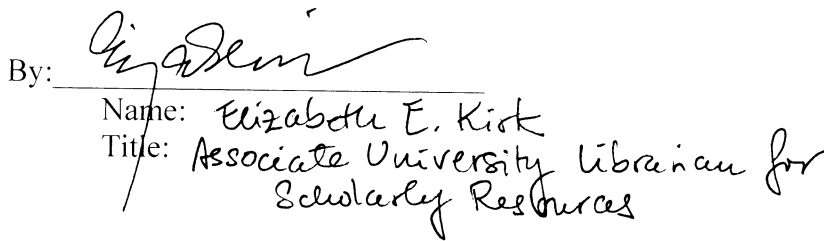 By:
Name: Elizabeth E. Kirk
Title: Associate University Librarian for
Scholarly Resources